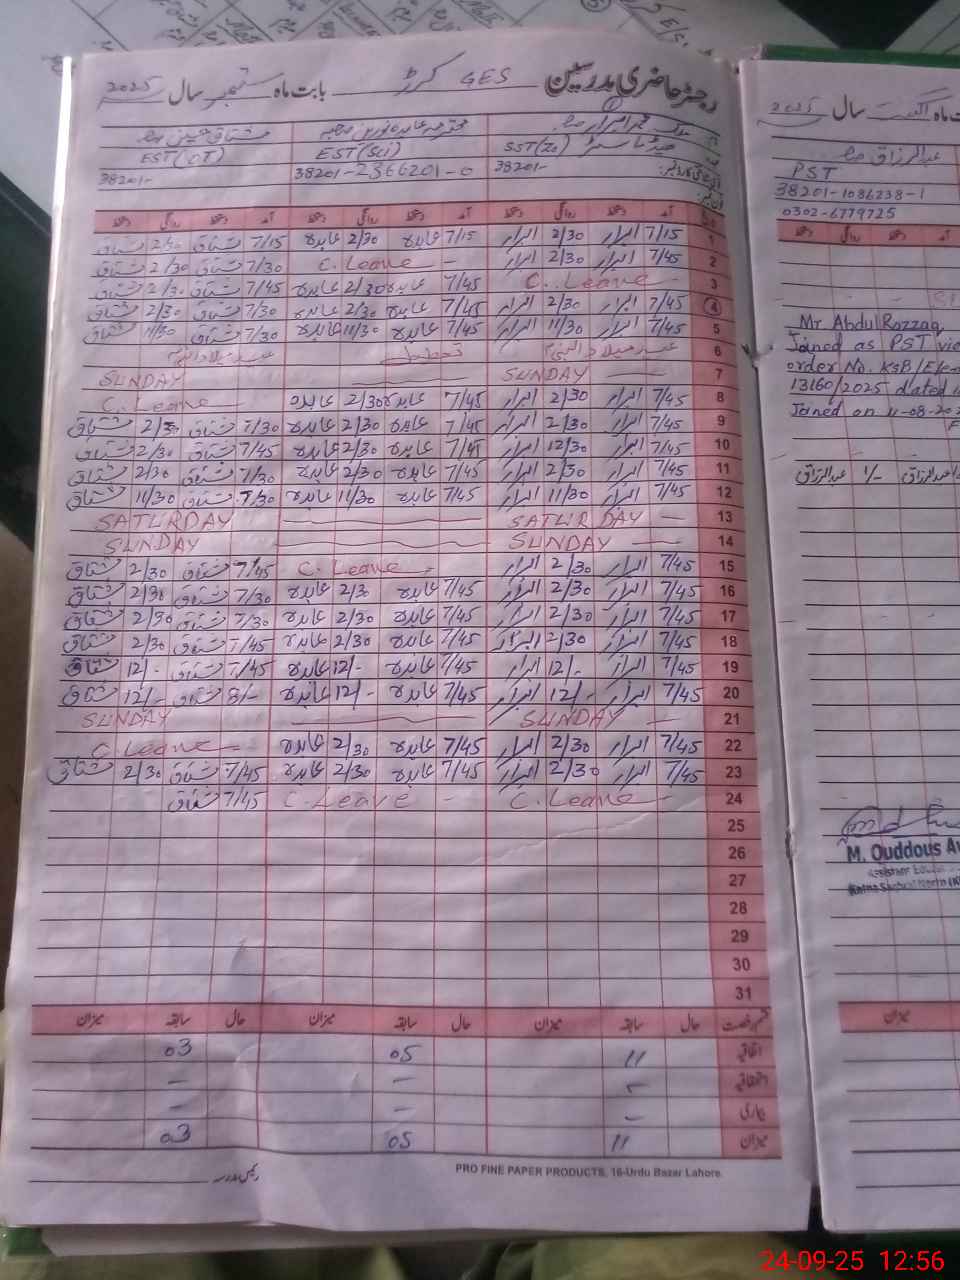 رجسٹر حاضری مدرسین GES کرڑ بابت ماہ ستمبر سال 2025
SST(Sc) EST(Sci) EST(OT)
38201- 38201-2366201-0 38201-
آمد دستخط روانگی دستخط آمد دستخط روانگی دستخط آمد دستخط روانگی دستخط
1 7/15 ابرار 2/30 ابرار 7/15 عابدہ 2/30 عابدہ 7/15 مشتاق 2/30 مشتاق
2 7/45 ابرار 2/30 ابرار C. Leave 7/30 مشتاق 2/30 مشتاق
3 C. Leave 7/45 عابدہ 2/30 عابدہ 7/45 مشتاق 2/30 مشتاق
4 7/45 ابرار 2/30 ابرار 7/45 عابدہ 2/30 عابدہ 7/30 مشتاق 2/30 مشتاق
5 7/45 ابرار 11/30 ابرار 7/45 عابدہ 11/30 عابدہ 7/30 مشتاق 11/30 مشتاق
6 عید میلاد النبیؐ تعطیل عید میلاد النبیؐ
7 SUNDAY SUNDAY
8 7/45 ابرار 2/30 ابرار 7/45 عابدہ 2/30 عابدہ C. Leave
9 7/45 ابرار 2/30 ابرار 7/45 عابدہ 2/30 عابدہ 7/30 مشتاق 2/30 مشتاق
10 7/45 ابرار 12/30 ابرار 7/45 عابدہ 2/30 عابدہ 7/45 مشتاق 2/30 مشتاق
11 7/45 ابرار 2/30 ابرار 7/45 عابدہ 2/30 عابدہ 7/30 مشتاق 2/30 مشتاق
12 7/45 ابرار 11/30 ابرار 7/45 عابدہ 11/30 عابدہ 7/30 مشتاق 11/30 مشتاق
13 SATURDAY SATURDAY
14 SUNDAY SUNDAY
15 7/45 ابرار 2/30 ابرار C. Leave 7/45 مشتاق 2/30 مشتاق
16 7/45 ابرار 2/30 ابرار 7/45 عابدہ 2/30 عابدہ 7/30 مشتاق 2/30 مشتاق
17 7/45 ابرار 2/30 ابرار 7/45 عابدہ 2/30 عابدہ 7/30 مشتاق 2/30 مشتاق
18 7/45 ابرار 2/30 ابرار 7/45 عابدہ 2/30 عابدہ 7/45 مشتاق 2/30 مشتاق
19 7/45 ابرار 12/- ابرار 7/45 عابدہ 12/- عابدہ 7/45 مشتاق 12/- مشتاق
20 7/45 ابرار 12/- ابرار 7/45 عابدہ 12/- عابدہ 8/- مشتاق 12/- مشتاق
21 SUNDAY SUNDAY
22 7/45 ابرار 2/30 ابرار 7/45 عابدہ 2/30 عابدہ C. Leave
23 7/45 ابرار 2/30 ابرار 7/45 عابدہ 2/30 عابدہ 7/45 مشتاق 2/30 مشتاق
24 C. Leave C. Leave 7/45 مشتاق
25
26
27
28
29
30
31
قسم رخصت حال سابقہ میزان حال سابقہ میزان حال سابقہ میزان
اتفاقیہ 11 05 03
استحقاقیہ - - -
بیماری - - -
میزان 11 05 03
رئیس مدرسہ
PRO FINE PAPER PRODUCTS, 16-Urdu Bazar Lahore.
ماہ اگست سال 2025
عبدالرزاق
PST
38201-1086238-1
0302-6779725
آمد دستخط روانگی دستخط
Mr Abdul Razzaq
Joined as PST
order No. KSB/
13160/2025 dated
Joined on 11-08-20
عبدالرزاق 1/- عبدالرزاق
M. Quddous
میزان
24-09-25 12:56